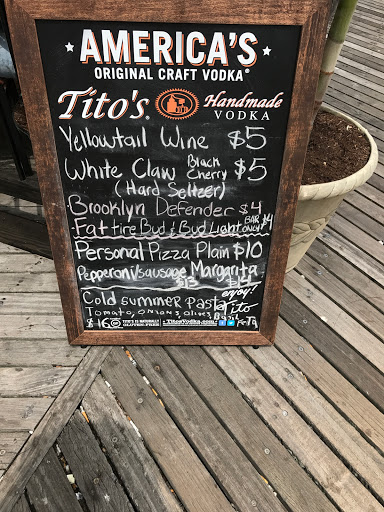 AMERICA'S
ORIGINAL CRAFT VODKA®
Tito's. Handmade
VODKA
Yellowtail Wine $5
White Claw Black Cherry $5
(Hard Seltzer)
Brooklyn Defender $4
Fat tire Bud & Bud Light BAR ONLY $4
Personal Pizza Plain $10
Pepperoni/sausage Margarita
$13
enjoy!
Cold summer Pasta
Tomato, onions, olives, Basil
$16
TITO'S IS NATURALLY GLUTEN-FREE
TitosVodka.com